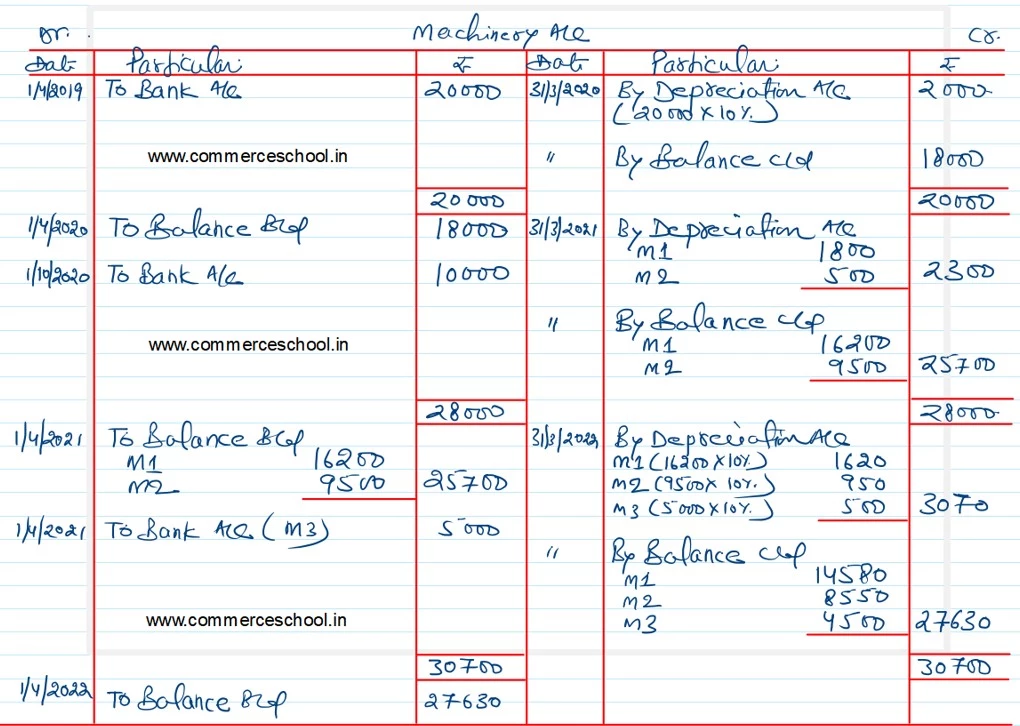 Dr. Machinery A/c Cr.
Date Particular ₹ Date Particular ₹
1/4/2019 To Bank A/c 20000 31/3/2020 By Depreciation A/c 2000
(20000 X 10%.)
www.commerceschool.in " By Balance c/d 18000
20000 20000
1/4/2020 To Balance B/d 18000 31/3/2021 By Depreciation A/c
M1 1800
1/10/2020 To Bank A/c 10000 M2 500 2300
" By Balance c/d
www.commerceschool.in M1 16200
M2 9500 25700
28000 28000
1/4/2021 To Balance B/d 31/3/2022 By Depreciation A/c
M1 16200 M1 (16200 X 10%.) 1620
M2 9500 25700 M2 (9500 X 10%.) 950
M3 (5000 X 10%.) 500 3070
1/4/2021 To Bank A/c (M3) 5000
" By Balance c/d
M1 14580
M2 8550
www.commerceschool.in M3 4500 27630
30700 30700
1/4/2022 To Balance B/d 27630